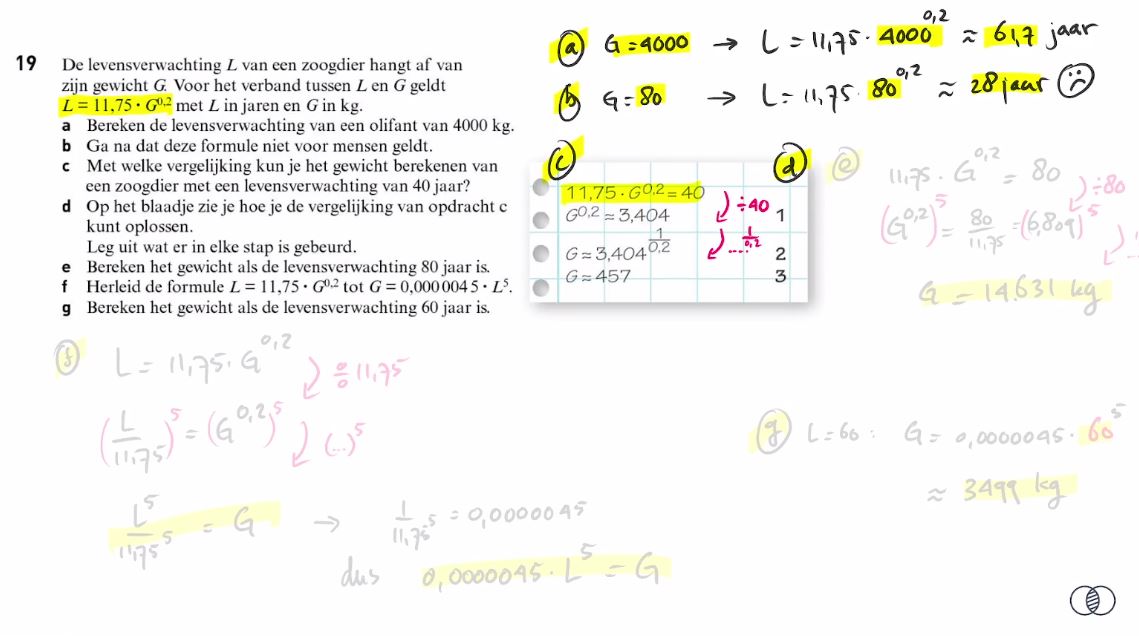 19 De levensverwachting L van een zoogdier hangt af van
zijn gewicht G. Voor het verband tussen L en G geldt
L = 11,75 · G^0,2 met L in jaren en G in kg.
a Bereken de levensverwachting van een olifant van 4000 kg.
b Ga na dat deze formule niet voor mensen geldt.
c Met welke vergelijking kun je het gewicht berekenen van
een zoogdier met een levensverwachting van 40 jaar?
d Op het blaadje zie je hoe je de vergelijking van opdracht c
kunt oplossen.
Leg uit wat er in elke stap is gebeurd.
e Bereken het gewicht als de levensverwachting 80 jaar is.
f Herleid de formule L = 11,75 · G^0,2 tot G = 0,0000045 · L^5.
g Bereken het gewicht als de levensverwachting 60 jaar is.
a G = 4000 → L = 11,75 · 4000^0,2 ≈ 61,7 jaar
b G = 80 → L = 11,75 · 80^0,2 ≈ 28 jaar
c d
11,75 · G^0,2 = 40
G^0,2 ≈ 3,404 ÷40 1
G ≈ 3,404^(1/0,2) ....^(1/0,2) 2
G ≈ 457 3
e 11,75 · G^0,2 = 80 ÷80
(G^0,2)^5 = 80/11,75 = (6,809)^5
G = 14.631 kg
f L = 11,75 · G^0,2 ÷ 11,75
(L/11,75)^5 = (G^0,2)^5 (...)^5
L^5/11,75^5 = G → 1/11,75^5 = 0,0000045
dus 0,0000045 · L^5 = G
g L = 60 : G = 0,0000045 · 60^5
≈ 3499 kg